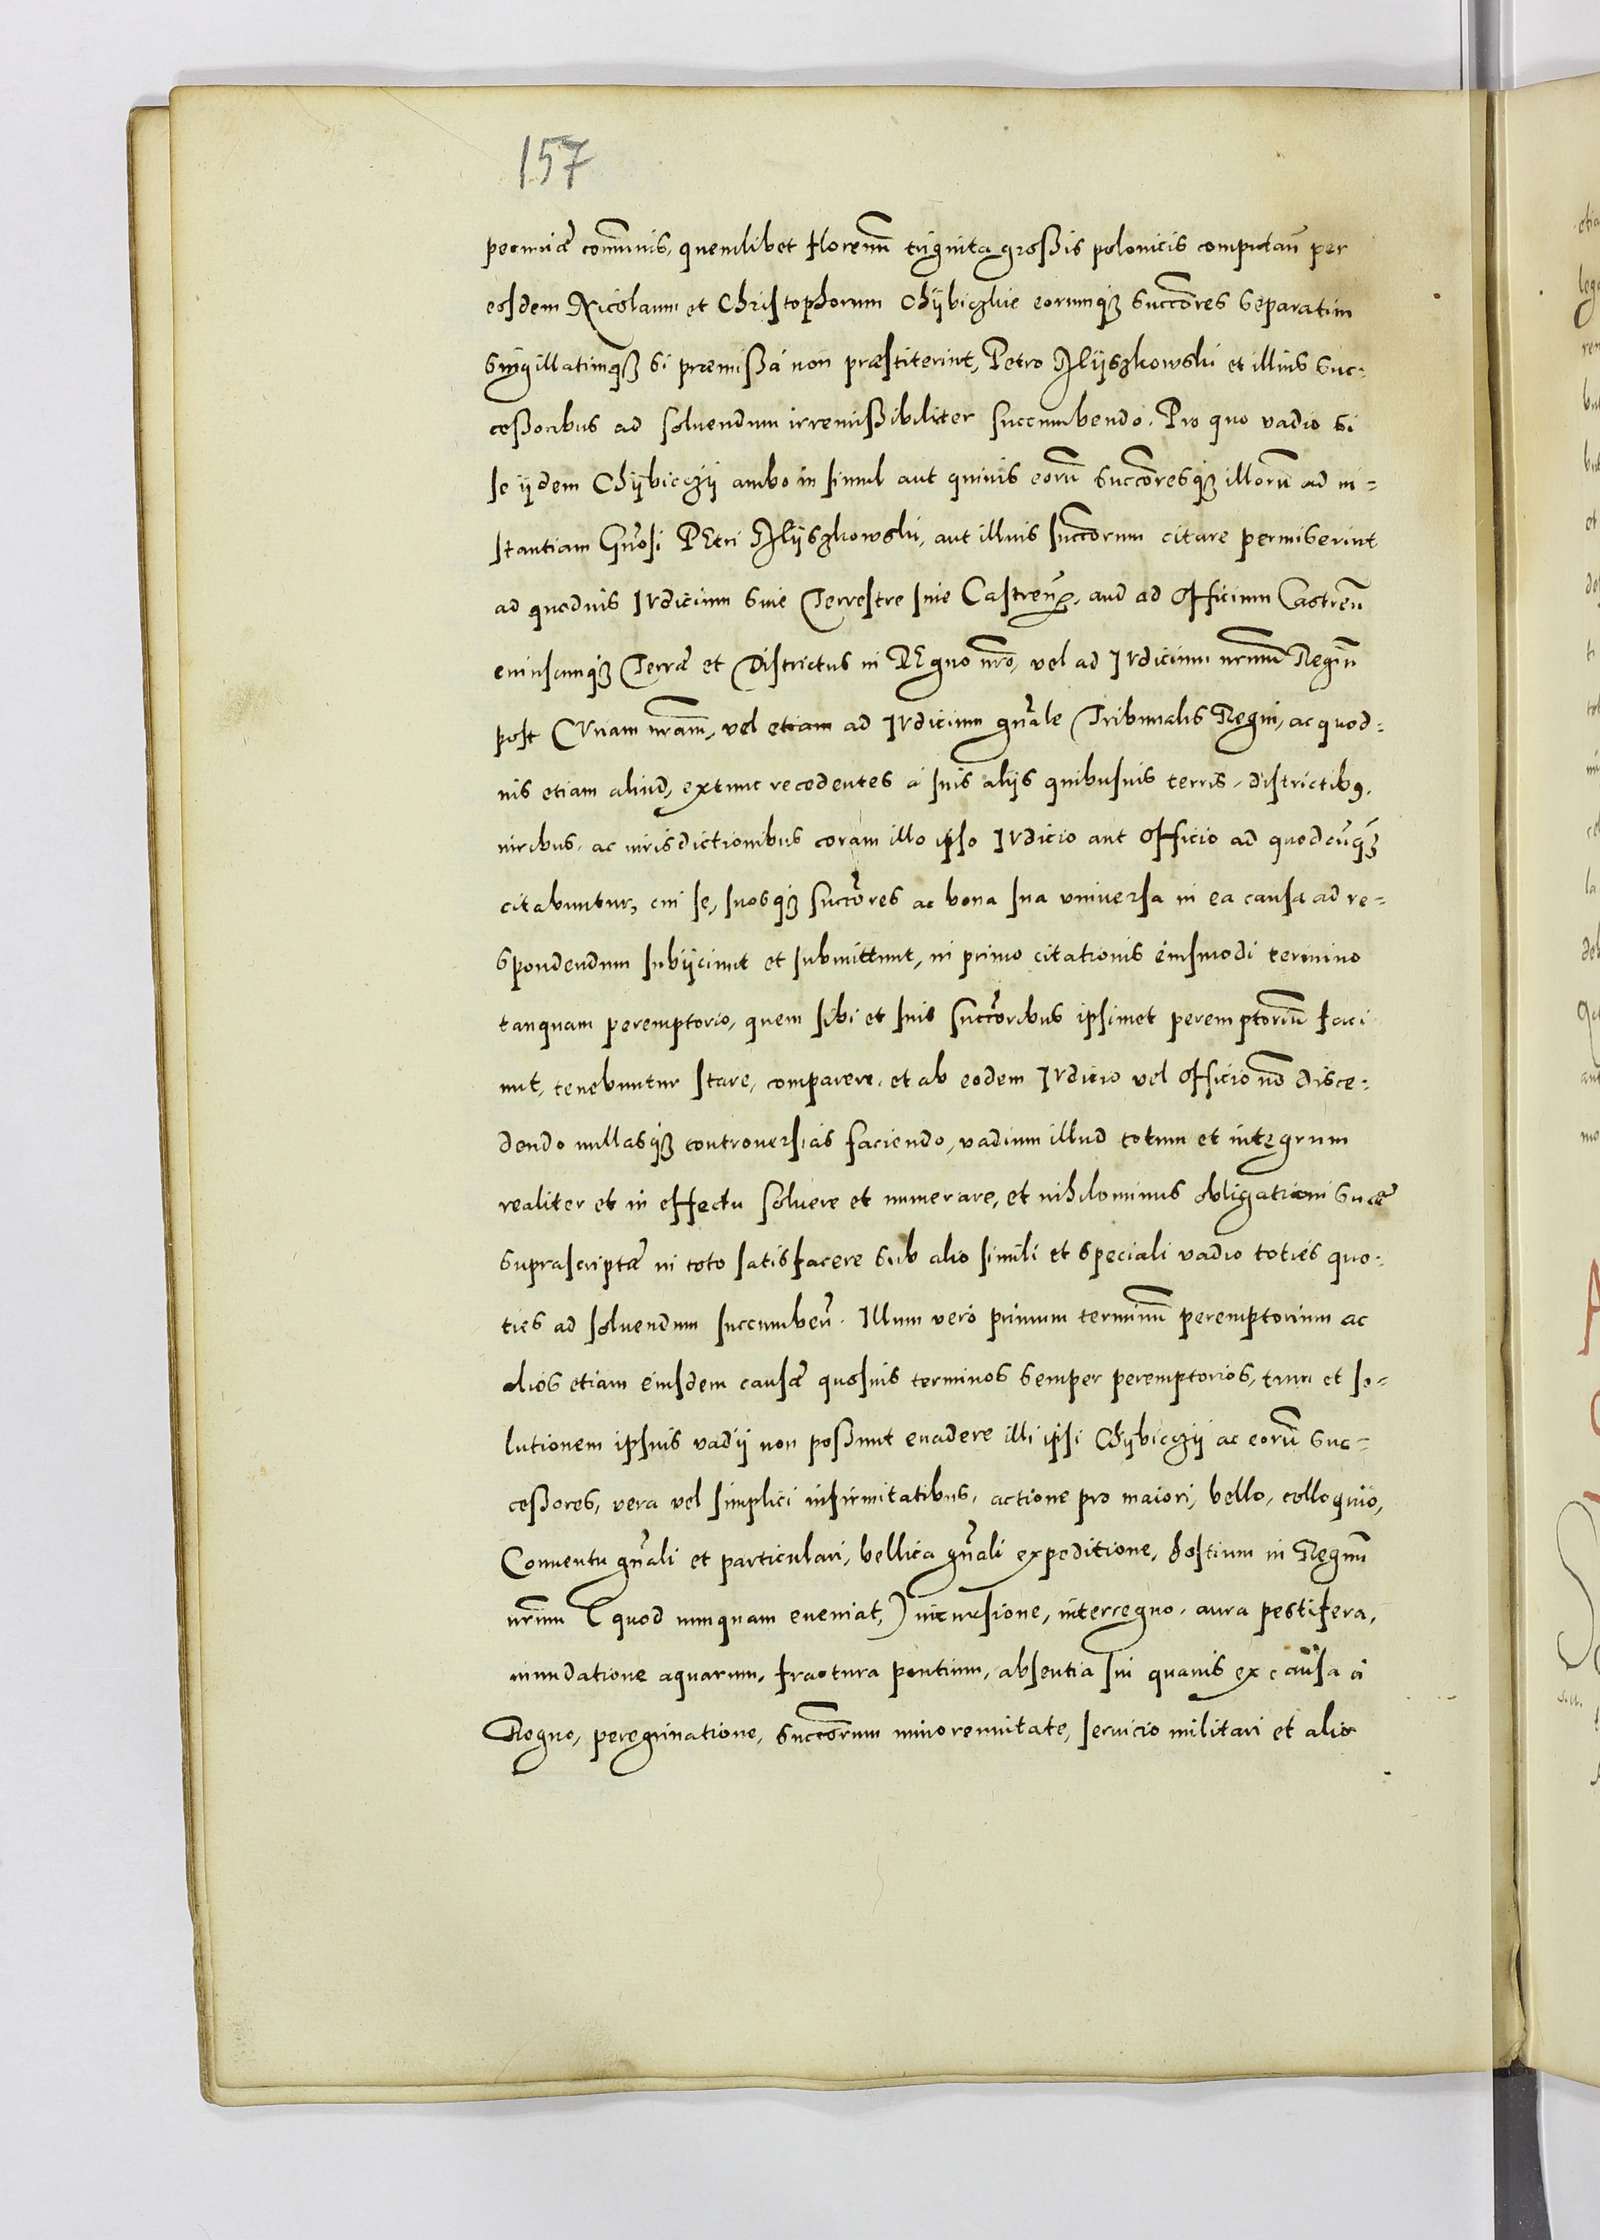 157
pecuniæ com̃unis, quemlibet florenũ triginta großis polonicis computañ per
eosdem Nicolaum et Christophorum Chÿbiczkie eorumq̃ß succores separatim
singillatimq̃ß si præmißa non præstiterint, Petro Mÿszkowski et illius suc-
ceßoribus ad soluendum irremißibiliter succumbendo. Pro quo vadio si
se ÿdem Chÿbiczÿ ambo in simul aut quiuis eorũ succoresq̃ß illorũ ad in-
stantiam Gñosi PEtri Mÿszkowski, aut illius succorum citare permiserint
ad quoduis IVdicium siue Terrestre siue Castreñ, aud ad officium Castreñ
cuiuscumq̃ß Terræ et Districtus in REgno nr̃o, vel ad IVdicium nr̃mũ Regiũ
post CVriam nr̃am, vel etiam ad IVdicium gñale Tribunalis Regni, ac quod-
uis etiam aliud, extunc recedentes a suis alijs quibusuis terris, districtib9,
iuribus, ac iurisdictionibus coram illo ipso IVdicio aut officio ad quodcũq̃ß
citabuntur, cui se, suosq̃ß succores ac bona sua vniuersa in ea causa ad re-
spondendum subÿciunt et submittunt, in primo citationis eiusmodi termino
tanquam peremptorio, quem sibi et suis succoribus ipsimet peremptoriũ faci
unt, tenebuntur stare, comparere, et ab eodem IVdicio vel officio nõ disce-
dendo nullasq̃ß controuersias faciendo, vadium illud totum et integrum
realiter et in effectu soluere et numerare, et nihilominus obligationi suæ
suprascriptæ in toto satisfacere sub alio simili et speciali vadio toties quo-
ties ad soluendum succumbeñ. Illum vero primum terminũ peremptorium ac
alios etiam eiusdem causæ quosuis terminos semper peremptorios, tum et so-
lutionem ipsius vadÿ non poßunt euadere illi ipsi Chÿbiczÿ ac eorũ suc-
ceßores, vera vel simplici infirmitatibus, actione pro maiori, bello, colloquio,
Conuentu gñali et particulari, bellica gñali expeditione, hostium in Regnũ
nr̃um (quod nunquam eueniat,) incursione, interregno, aura pestifera,
inundatione aquarum, fractura pontium, absentia sui quauis ex causa a
Regno, peregrinatione, succorum minorennitate, seruicio militari et alio